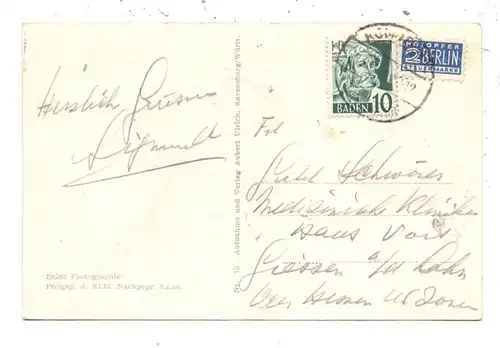 Herzlich Grüsse
Sigmund
Echte Photographie
Freigeg. d. RLM. Nachgepr. 6.1.40.
Nr. 10 Aufnahme und Verlag Aubert Ulrich, Ravensburg/Württ.
BADEN 10
NOTOPFER
2 BERLIN
STEUERMARKE
Frl
Schwörer
Medizinische Kliniker
Haus Vois
Giessen a/d Lahn
Ober Hessen US Zone